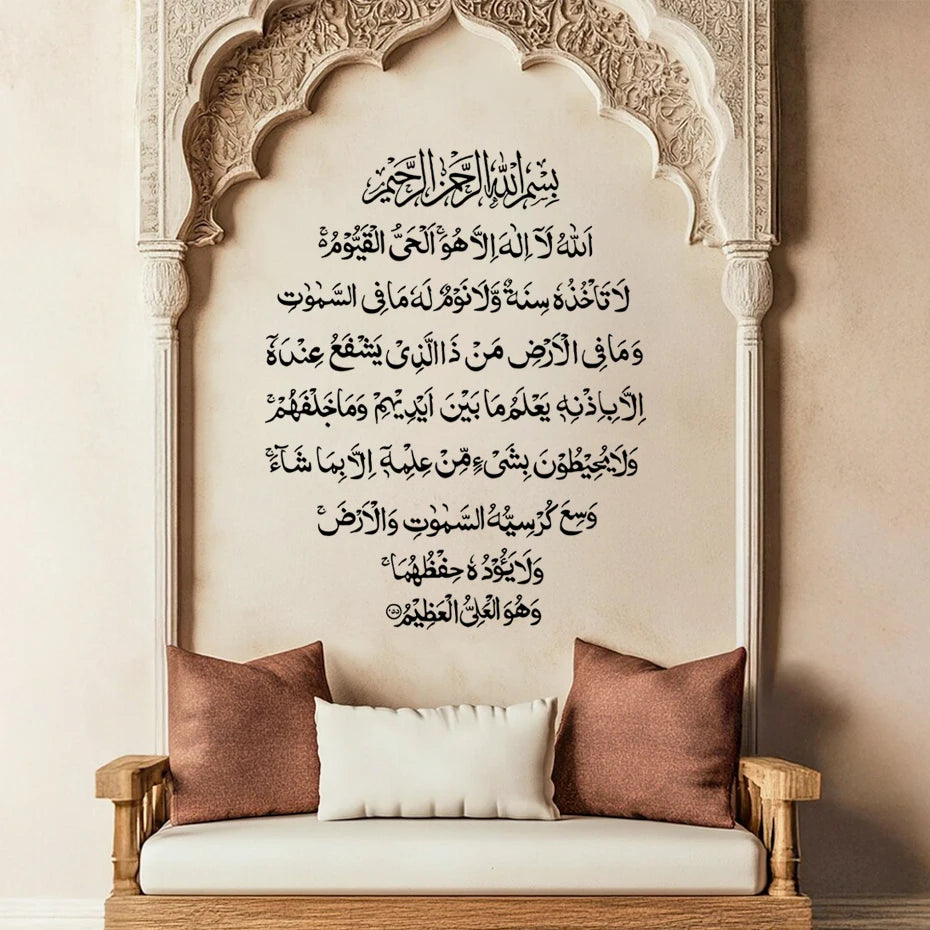 بِسْمِ اللهِ الرَّحْمٰنِ الرَّحِيْمِ
اَللهُ لَآ اِلٰهَ اِلَّا هُوَۚ اَلْحَيُّ الْقَيُّوْمُ ەۚ
لَا تَاْخُذُهٗ سِنَةٌ وَّلَا نَوْمٌ لَهٗ مَا فِى السَّمٰوٰتِ
وَمَا فِى الْاَرْضِ مَنْ ذَا الَّذِىْ يَشْفَعُ عِنْدَهٗٓ
اِلَّا بِاِذْنِهٖ يَعْلَمُ مَا بَيْنَ اَيْدِيْهِمْ وَمَا خَلْفَهُمْۚ
وَلَا يُحِيْطُوْنَ بِشَىْءٍ مِّنْ عِلْمِهٖٓ اِلَّا بِمَا شَآءَۚ
وَسِعَ كُرْسِيُّهُ السَّمٰوٰتِ وَالْاَرْضَۚ
وَلَا يَـُٔوْدُهٗ حِفْظُهُمَاۚ
وَهُوَ الْعَلِىُّ الْعَظِيْمُ ۝٢٥٥